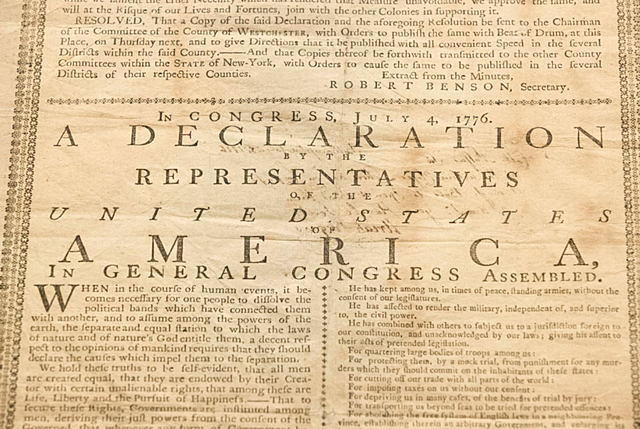 will at the Risque of our Lives and Fortunes, join with the other Colonies in supporting it.
RESOLVED, That a Copy of the said Declaration and the aforegoing Resolution be sent to the Chairman
of the Committee of the County of WESTCHESTER, with Orders to publish the same with Beat of Drum, at this
Place, on Thursday next, and to give Directions that it be published with all convenient Speed in the several
Districts within the said County.——And that Copies thereof be forthwith transmitted to the other County
Committees within the STATE of New-York, with Orders to cause the same to be published in the several
Districts of their respective Counties.
Extract from the Minutes,
ROBERT BENSON, Secretary.
IN CONGRESS, JULY 4, 1776.
A DECLARATION
BY THE
REPRESENTATIVES
OF THE
UNITED STATES
OF
AMERICA,
IN GENERAL CONGRESS ASSEMBLED.
WHEN in the course of human events, it be-
comes necessary for one people to dissolve the
political bands which have connected them
with another, and to assume among the powers of the
earth, the separate and equal station to which the laws
of nature and of nature's God entitle them, a decent res-
pect to the opinions of mankind requires that they should
declare the causes which impel them to the separation.
We hold these truths to be self-evident, that all men
are created equal, that they are endowed by their Crea-
tor with certain unalienable rights, that among these are
Life, Liberty and the Pursuit of Happiness.——That to
secure these Rights, Governments are instituted among
men, deriving their just powers from the consent of the
He has kept among us, in times of peace, standing armies, without the
consent of our legislatures.
He has affected to render the military, independent of, and superior
to, the civil power.
He has combined with others to subject us to a jurisdiction foreign to
our constitution, and unacknowledged by our laws; giving his assent to
their acts of pretended legislation.
For quartering large bodies of troops among us:
For protecting them, by a mock trial, from punishment for any mur-
ders which they should commit on the inhabitants of these states:
For cutting off our trade with all parts of the world:
For imposing taxes on us without our consent:
For depriving us, in many cases, of the benefits of trial by jury:
For transporting us beyond seas to be tried for pretended offences:
For abolishing the free system of English laws in a neighbouring Pro-
vince, establishing therein an arbitrary Government, and enlarging